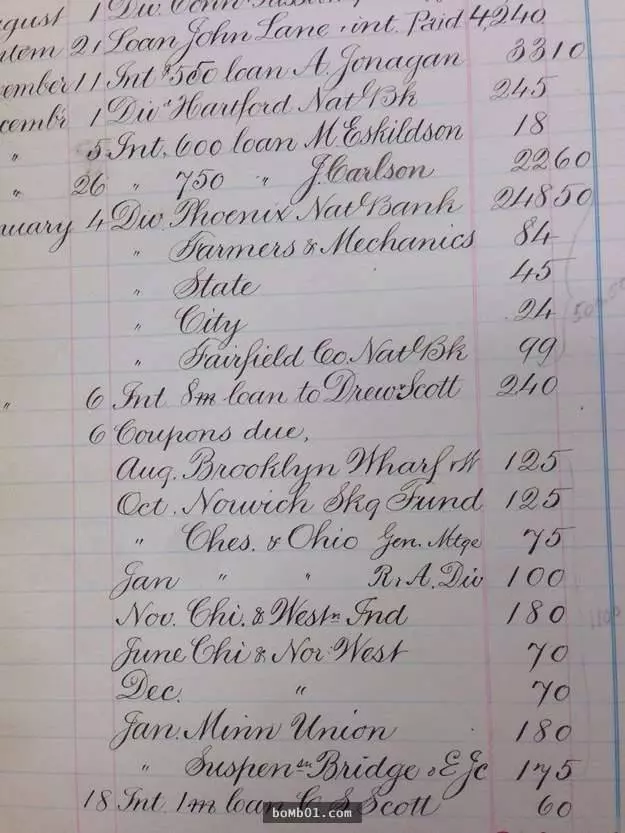 gust 1 Div. Conn. Passenger
tem 21 Loan John Lane & int. Paid 4,240
ember 11 Int $550 loan A. Jonagan 3310
cembr 1 Div. Hartford Natl Bk 245
" 5 Int. 600 loan M. Eskildson 18
" 26 " 750 " J. Carlson 2260
nuary 4 Div. Phoenix Natl Bank 24850
" Farmers & Mechanics 84
" State 45
" City 24
" Fairfield Co. Natl Bk 99
" 6 Int 8m loan to Drew & Scott 240
6 Coupons due,
Aug. Brooklyn Wharf 125
Oct. Norwich Skg Fund 125
" Ches. & Ohio Gen. Mtge 75
Jan " " R & A. Div 100
Nov. Chi. & Westn Ind 180
June Chi & Nor West 70
Dec. " 70
Jan. Minn Union 180
" Suspensn Bridge & E Jc 175
18 Int 1m loan C. S. Scott 60
bomb01.com